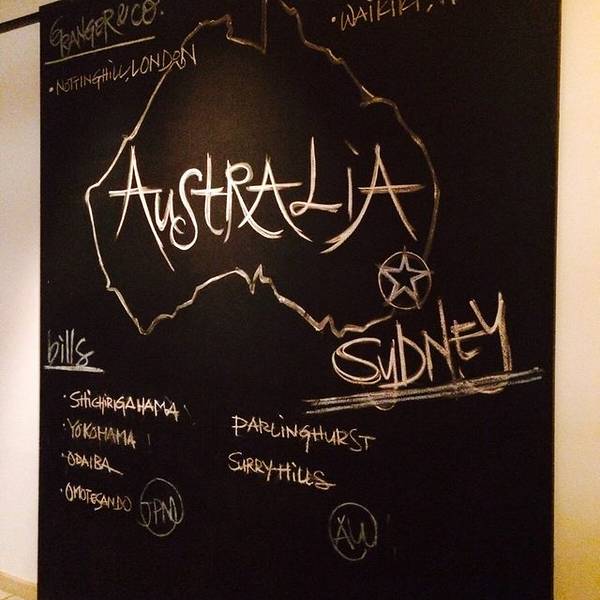 GRANGER & CO.
• NOTTINGHILL, LONDON
• WAIKIKI,
AUSTRALIA
SYDNEY
bills
• SHICHIRIGAHAMA
• YOKOHAMA
• ODAIBA
• OMOTESANDO JPN
DARLINGHURST
SURRY HILLS
AU